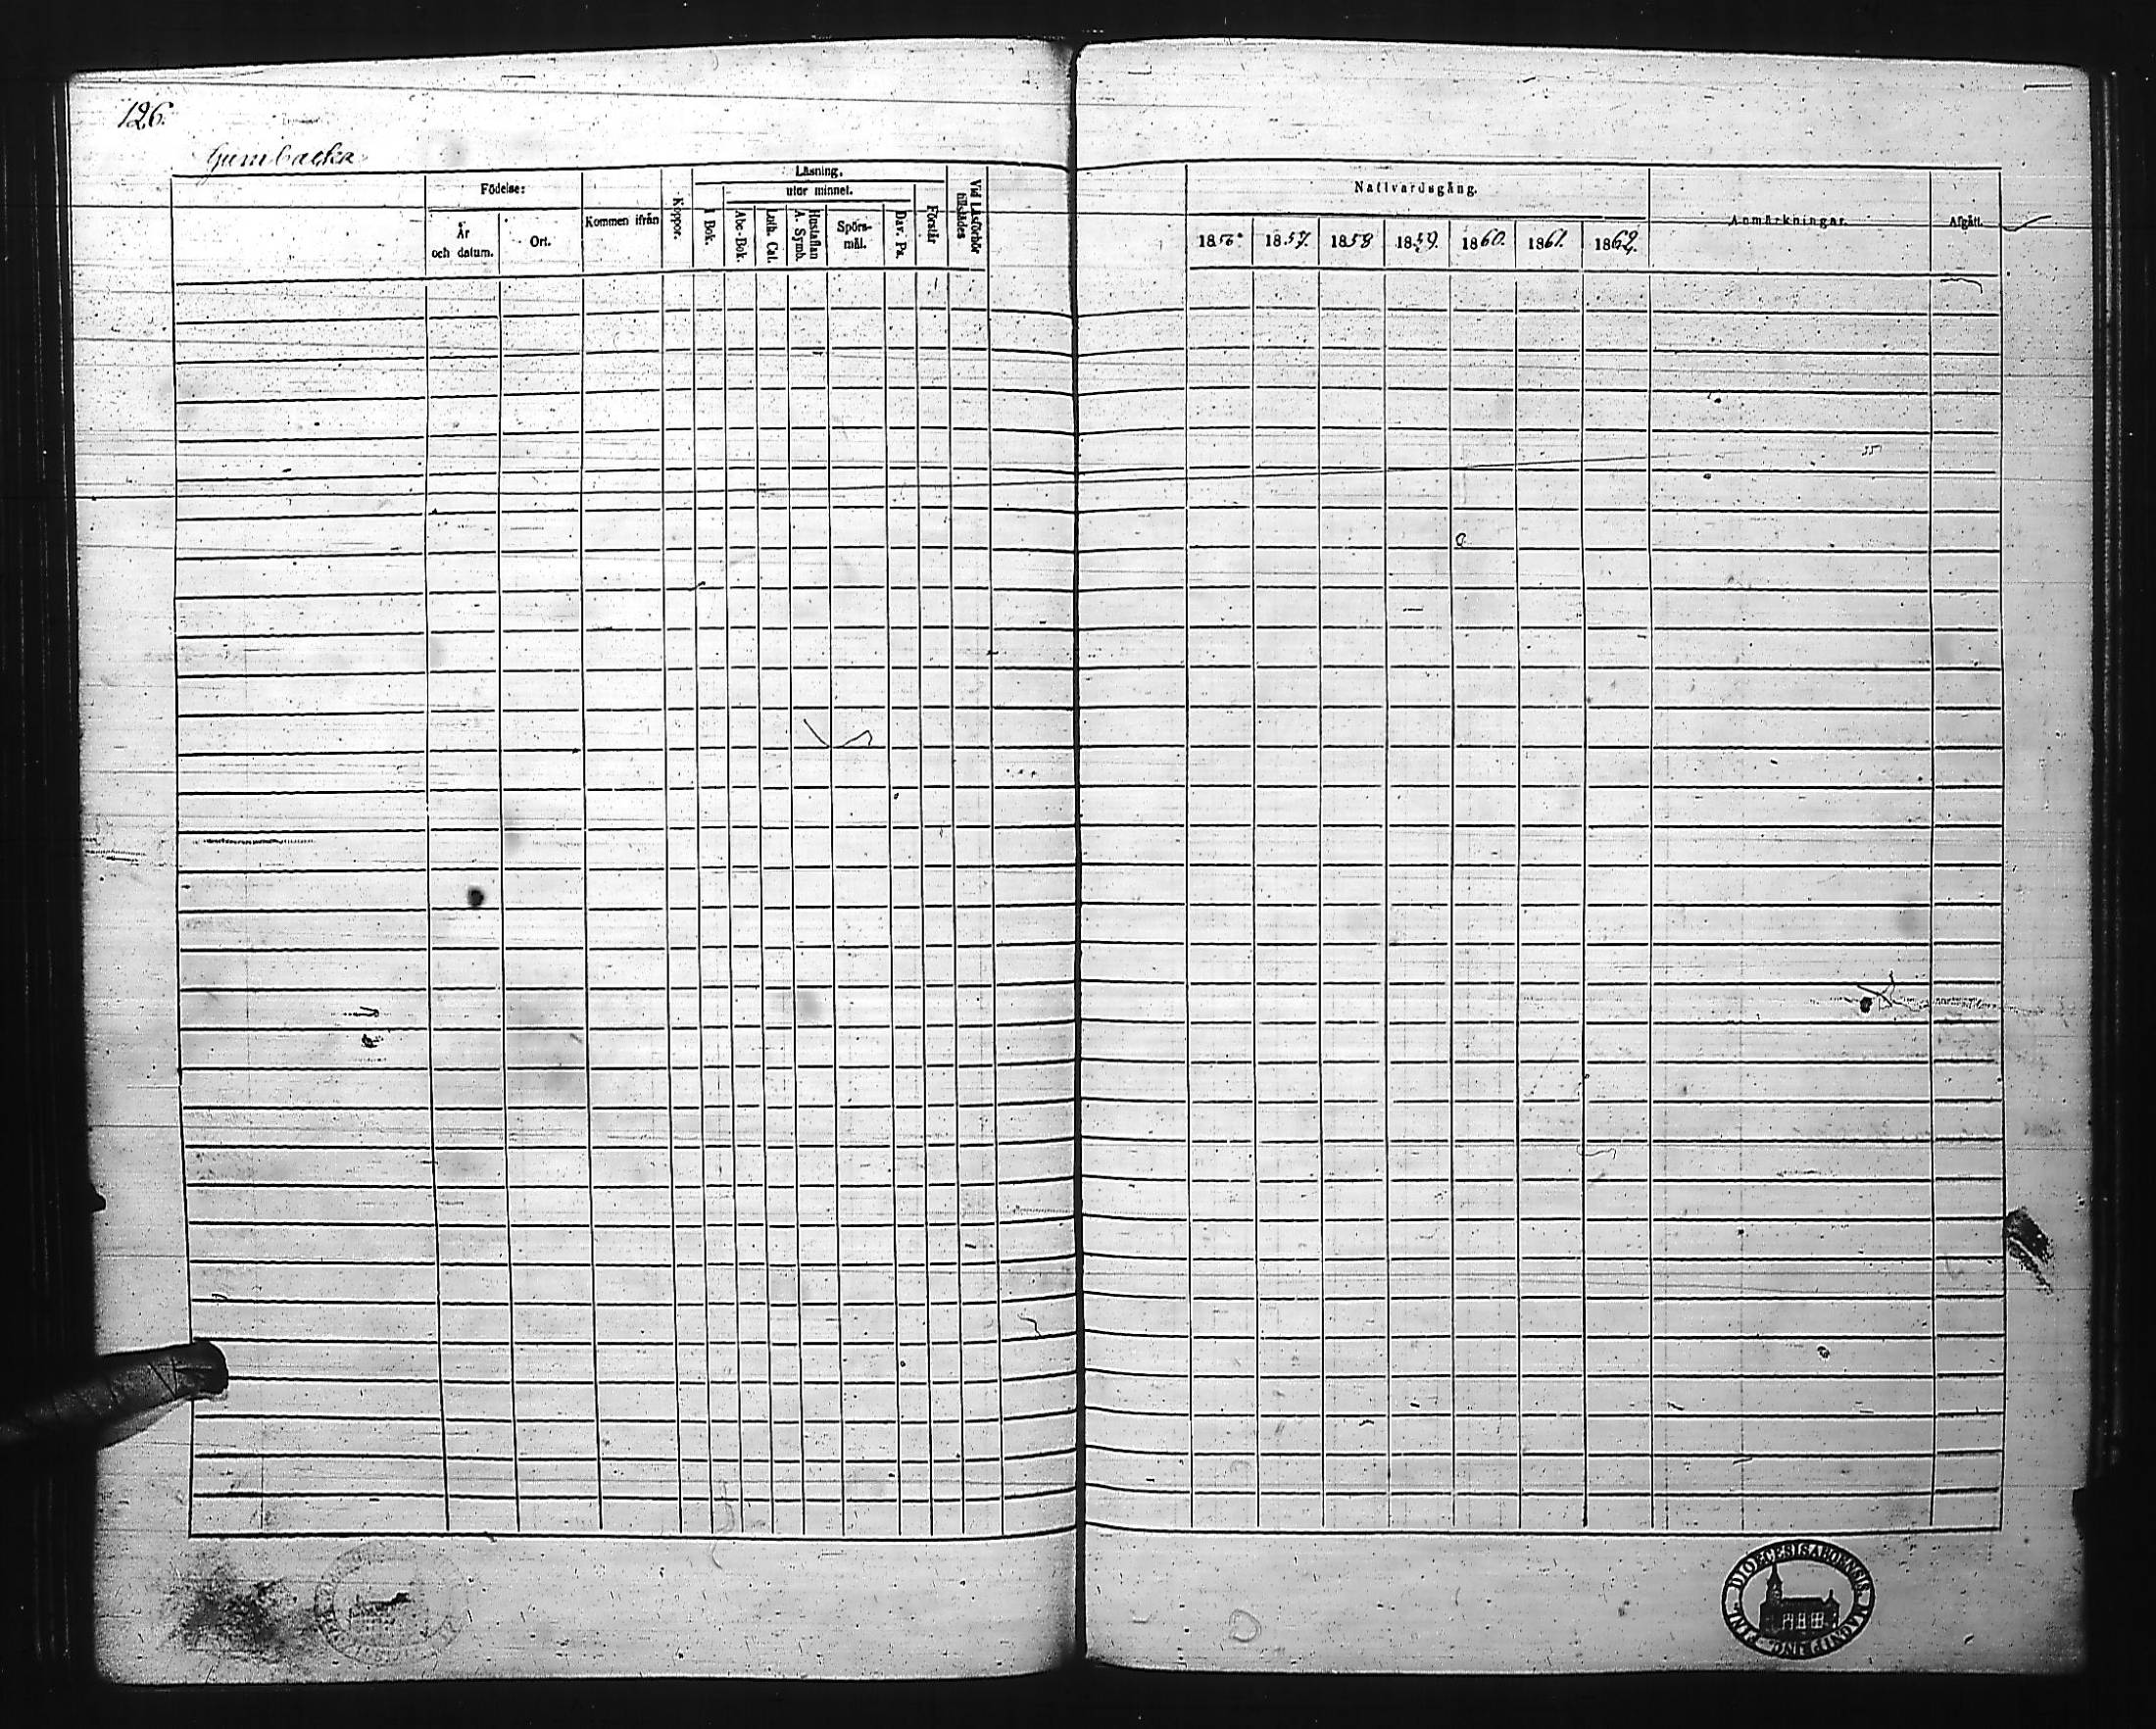 126.
Gumbacka
Födelse:
År
och datum.
Ort.
Kommen ifrån
Koppor.
Läsning,
utor minnet.
I Bok.
Abc-Bok.
Luth. Cat.
Hustaflan
A. Symb.
Spörs-
mål.
Dav. Ps.
Förstår
Vid Läsförhör
tillstädes
Nattvardsgång.
1856. 1857. 1858 1859. 1860. 1861. 1862.
Anmärkningar.
Afgått.